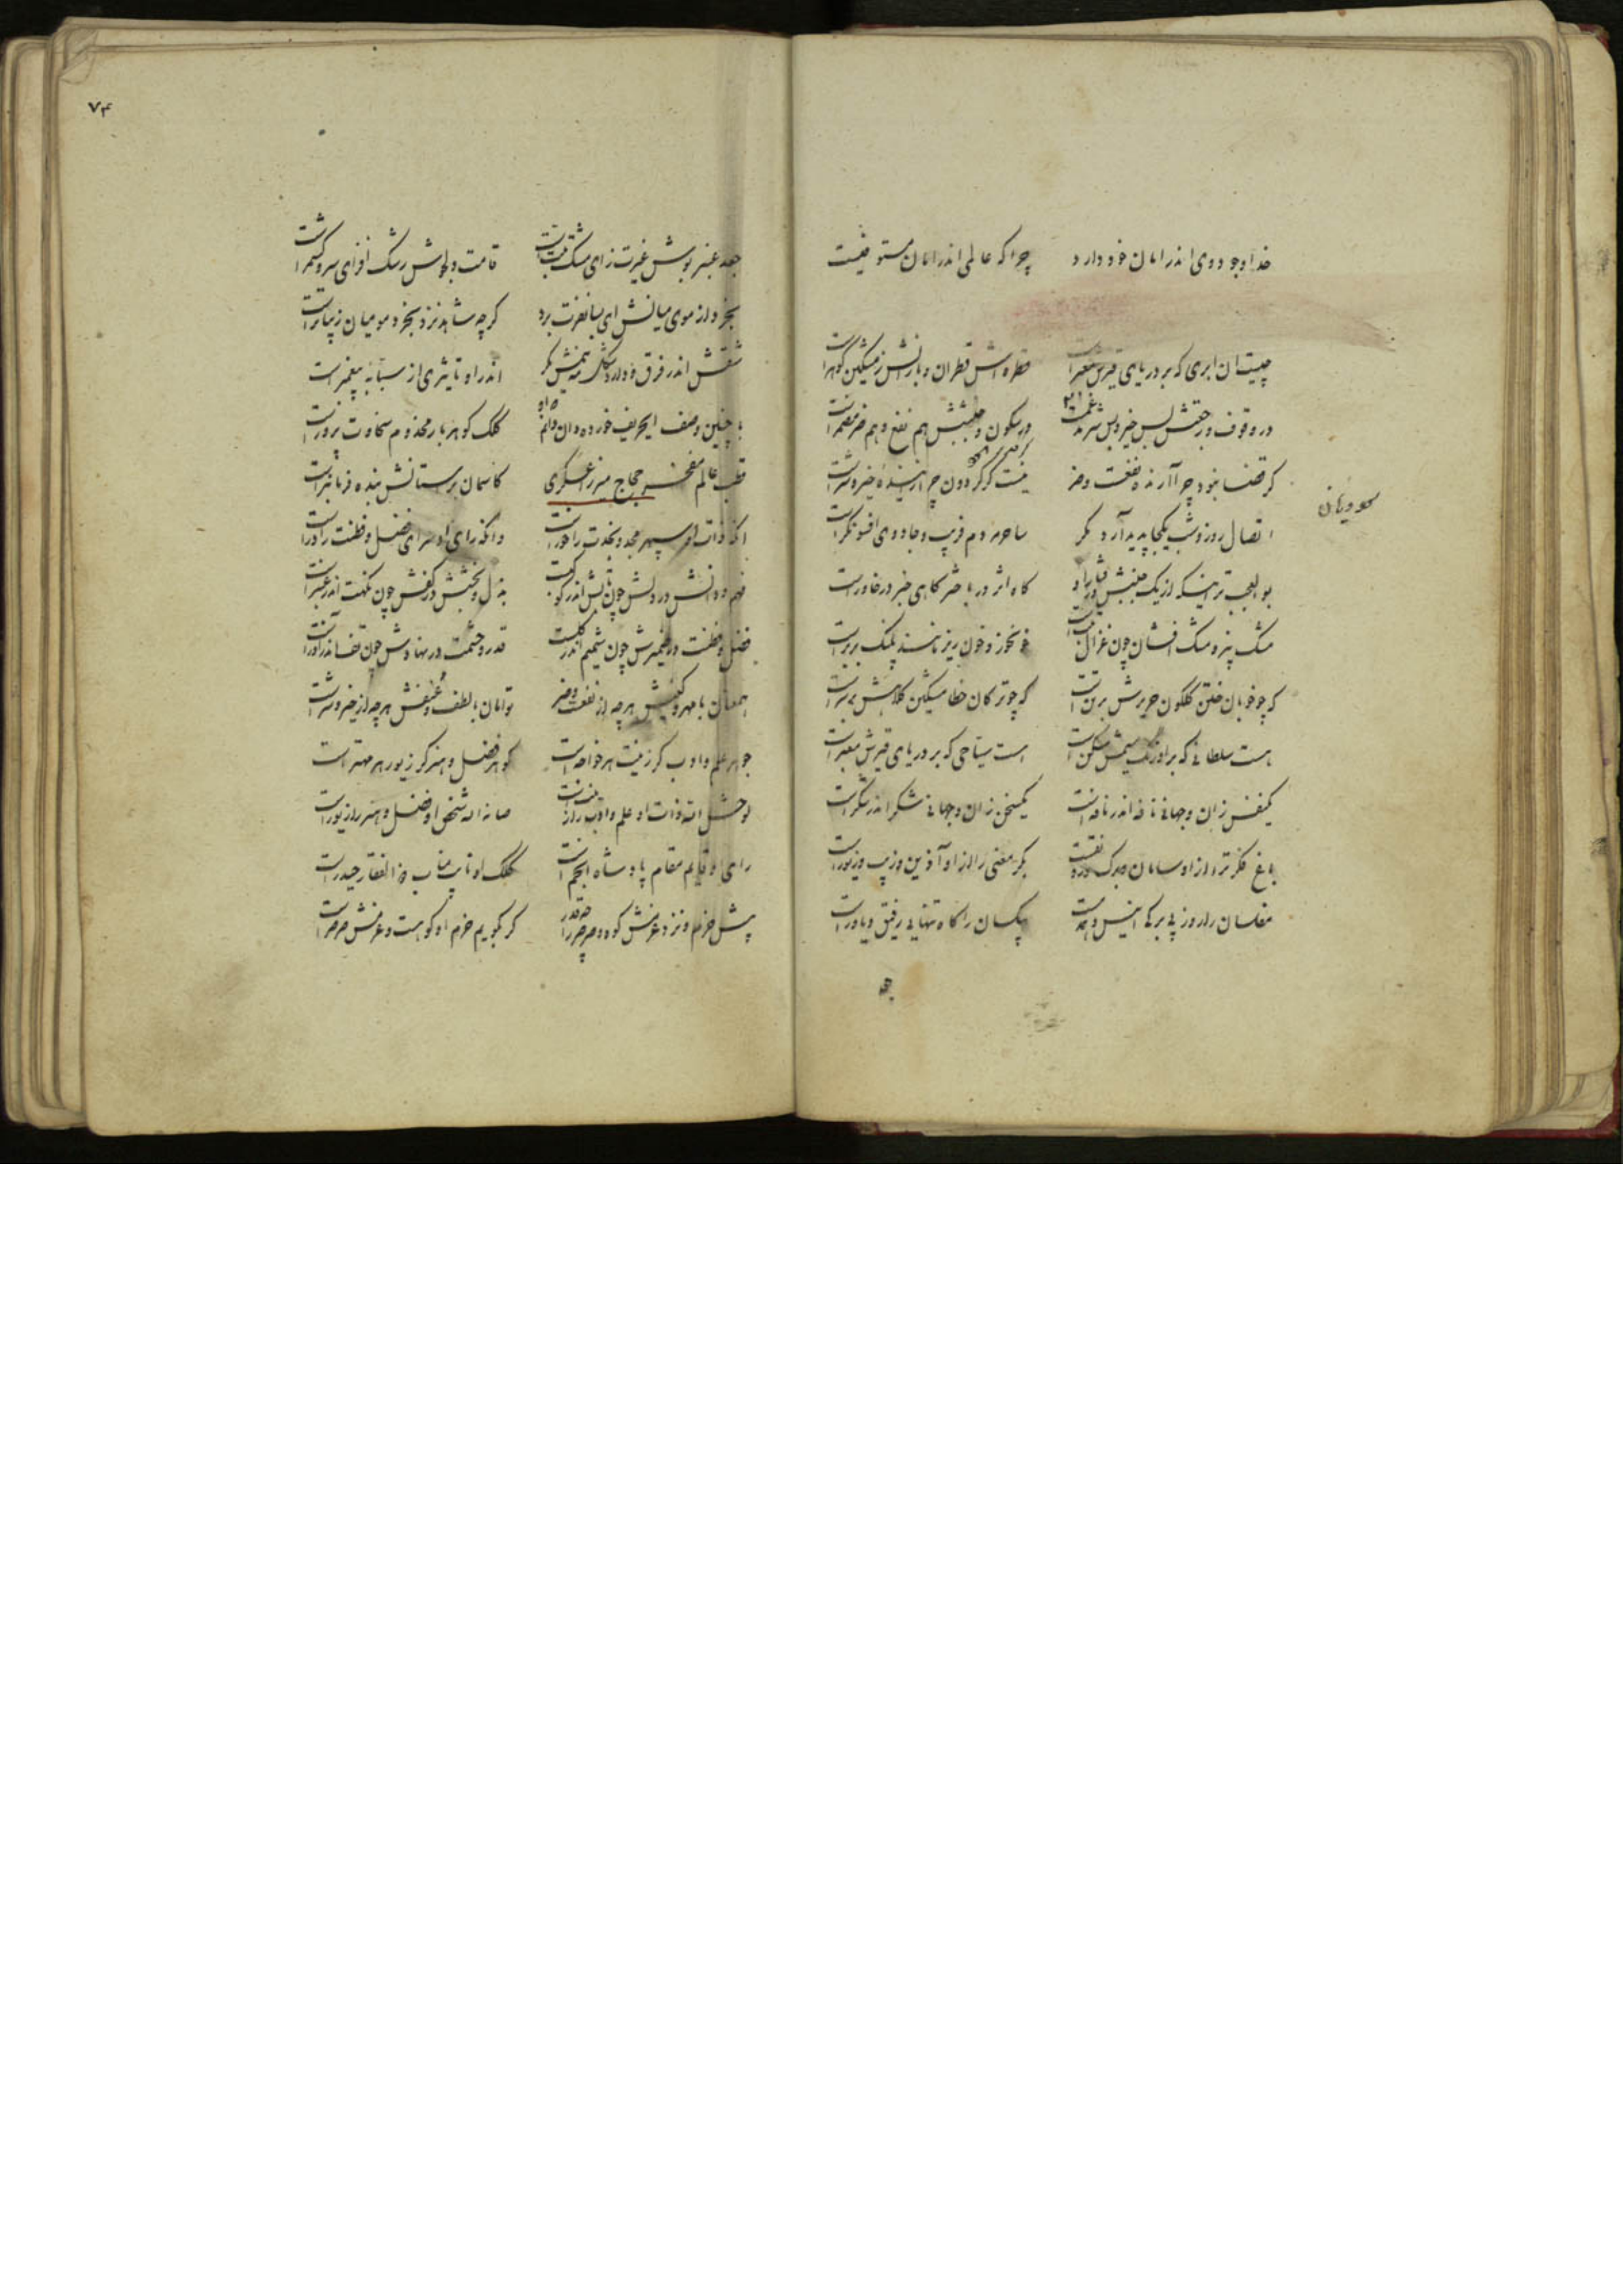 خدا وجود وی اندر امان خود دارد چرا که عالمی اندر امان مستوفیست
چیست آن ابری که بر دریای قیرش معبر است قطره اش قطران و بارانش ز مشکین گوهر است
در سکون و جنبشش هم نفع و هم ضر مضمر است
گر قضا نبود چرا آرنده نفعست و ضر نیست گر گردون چرا زاینده خیر و شر است
اتصال روز و شب یکجا پدید آرد مگر ساحر مردم فریب و جادوی افسونگر است
بوالعجب تر اینکه از یک جنبش رفتار او گاه اثر در باختر گاهی خبر در خاور است
مشک بیز و مشک افشان چون غزال خونخوار و خون ریز مانند پلنگ بربر است
گه چو خوبان ختن گلگون حریرش بر تن است گه چو ترکان خطا مشکین کلاهش بر سر است
هست سلطانی که بر اورنگ سیمش مسکن است هست سیاحی که بر دریای قیرش معبر است
یکنفس زان و جهانی نافه اندر نافه است یکسخن زان و جهانی شکر اندر شکر است
باغ فکرت را از او سامان و برگ بکر معنی را از او آذین و زیب و زیور است
مفلسان را روز بی برگی انیس و همدم است بیکسان را گاه تنهایی رفیق و یاور است
۷۴
جعد عنبر بوش غیرت زای مشک قامت دلجوش رشک افزای سرو کشمر است
گرچه شاهد نزد بخرد مو میان زیباتر است
شقش اندر فرق اندر او تاثیری از سبابه پیغمبر است
با چنین وصف ایحریف خورده دان کلک گوهر بار مخدوم سخاوت پرور است
قطب عالم مفخر حجاج میرزا عسکری کاسمان بر آستانش بنده فرمانبر است
آنکه ذات او سپهر مجد و نجدت را خور است وانکه رای او سرای فضل و فطنت را در است
فهم و دانش در دلش چون تابش اندر کوکب است بذل و بخشش در کفش چون نکهت اندر عنبر است
فضل و فطنت در ضمیرش چون شمیم اندر گلست قدر و حشمت در نهادش چون تف اندر آذر است
همعنان با مهر و کینش هرچه از نفع و ضر توامان با لطف و عنفش هرچه از خیر و شر است
جوهر علم و ادب کز زینت هر خواجه است گوهر فضل و هنر کز زیور هر مهتر است
لوحش الله ذات او علم و ادب را زینت است صانه الله شخص او فضل و هنر را زیور است
رای او قایم مقام پادشاه انجم است کلک او نایب مناب ذوالفقار حیدر است
پیش حزم و نزد عزمش کوه و صرصر را چه قدر گر بگویم حزم او کوهست و عزمش صرصر است